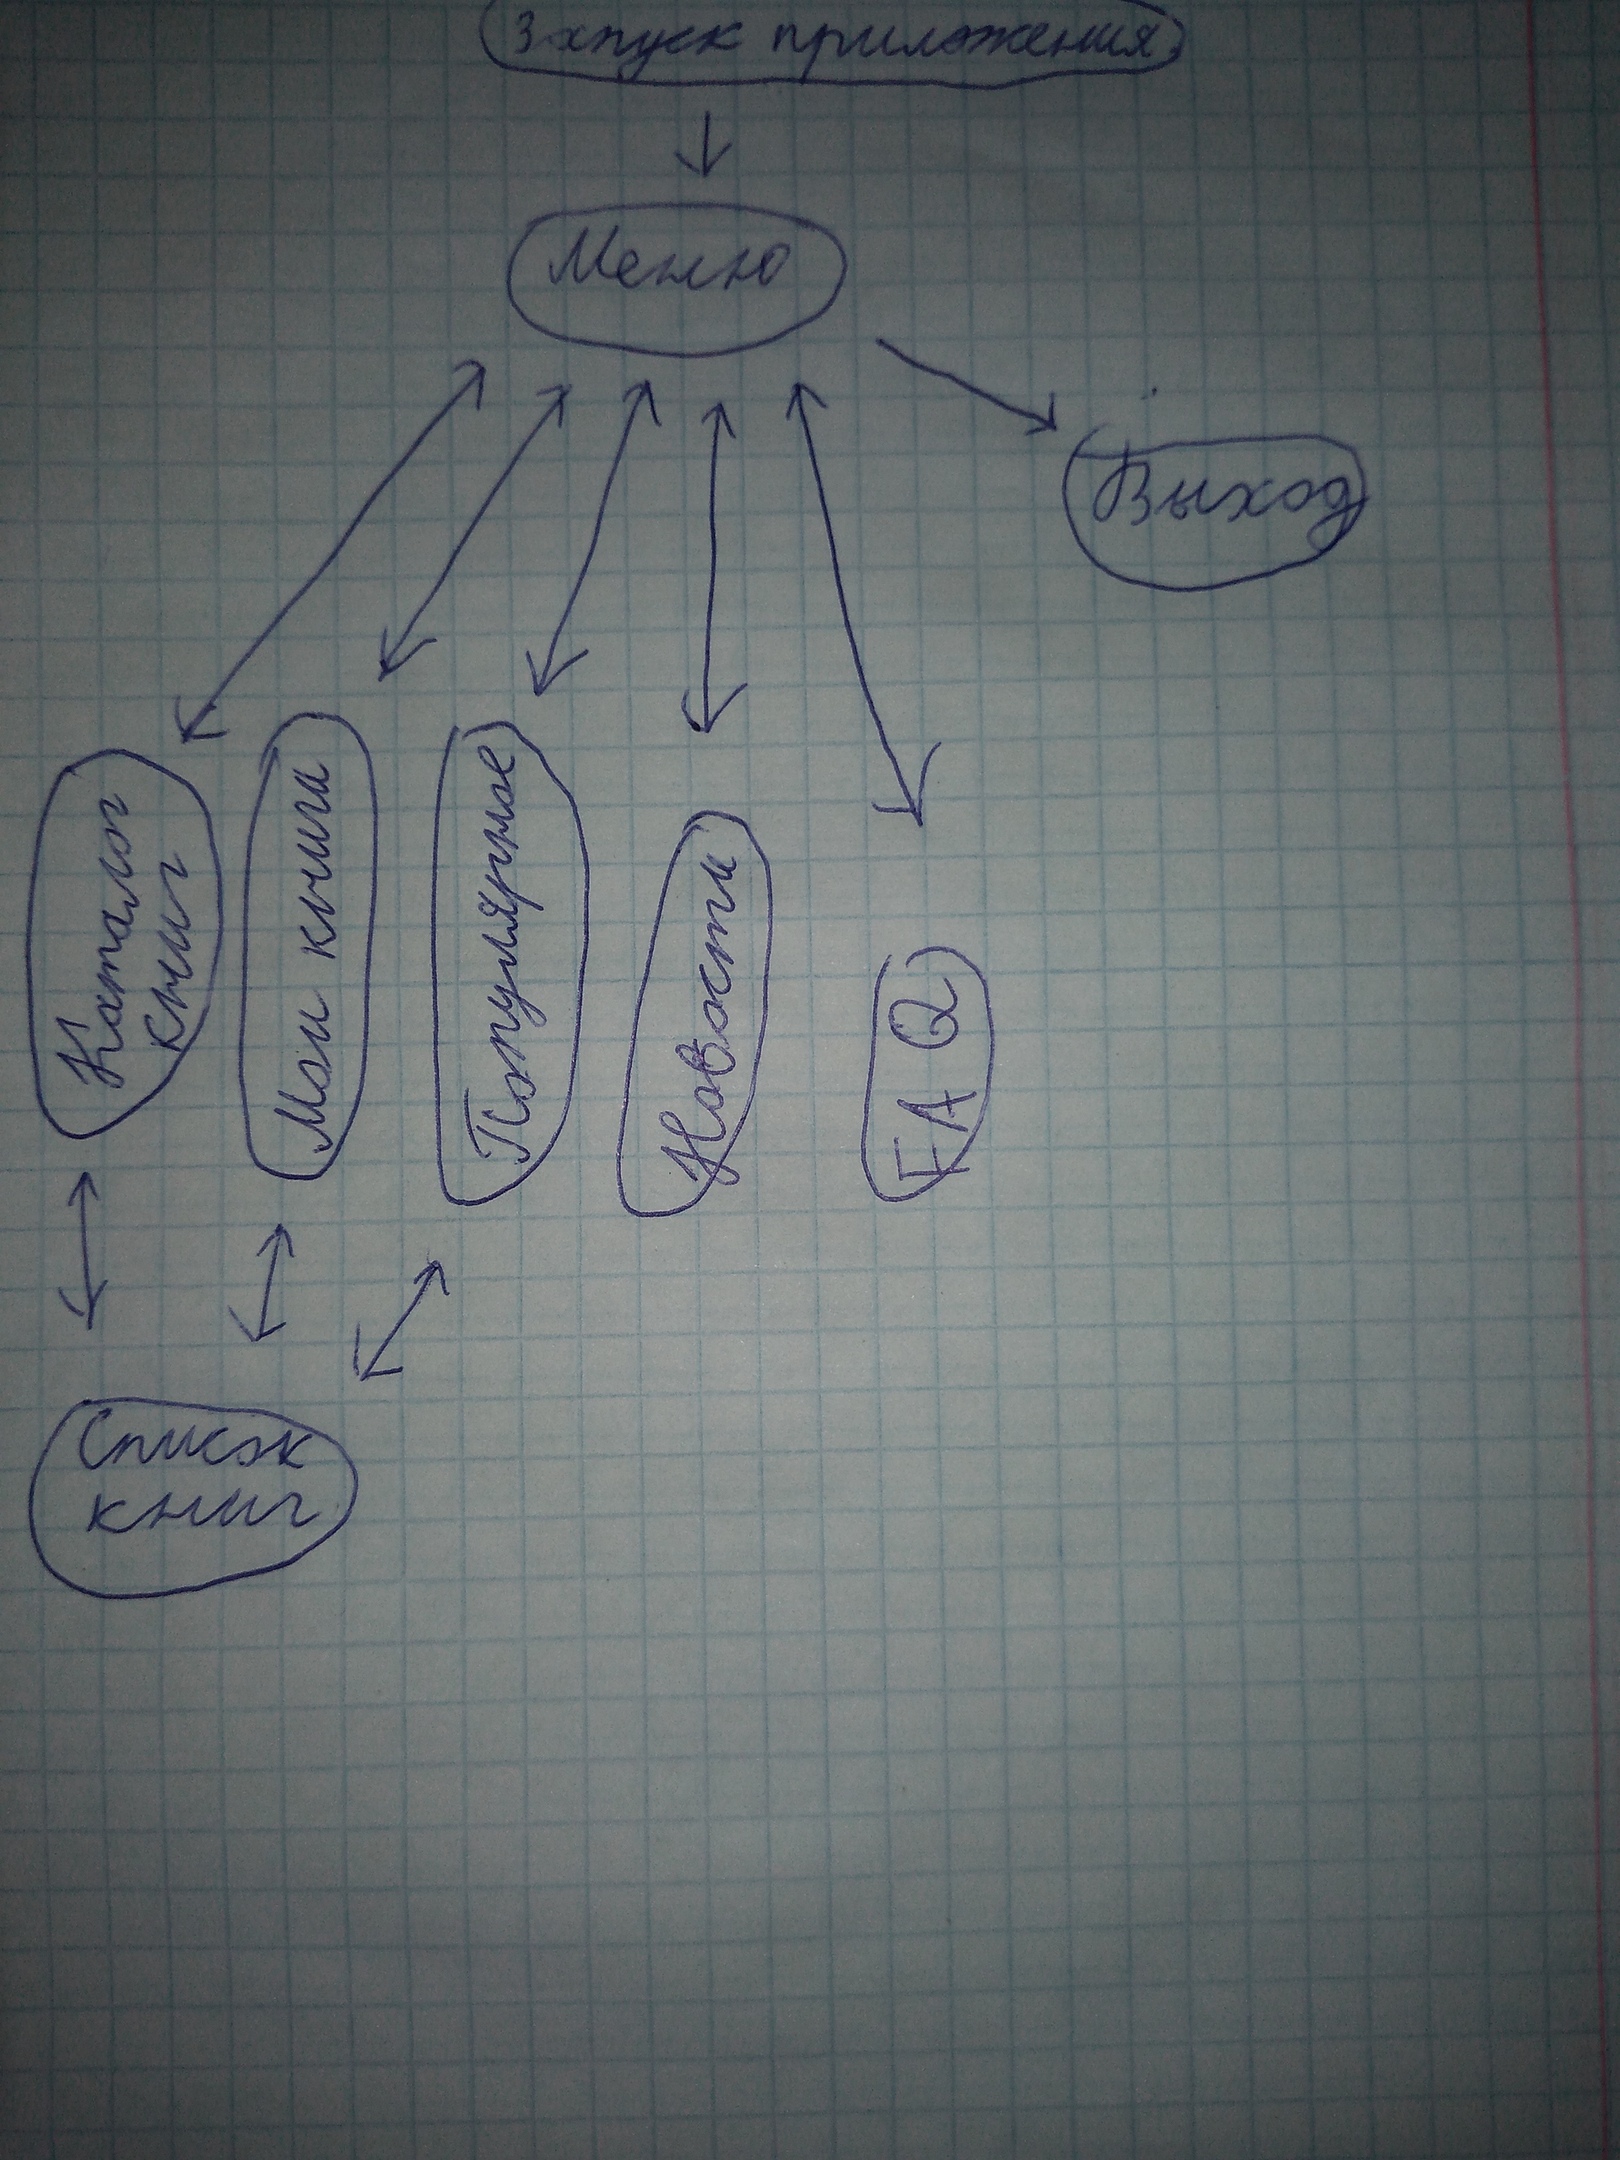 Запуск приложения
Меню
Выход
Каталог
книг
Мои книги
Популярное
Новости
FAQ
Список
книг